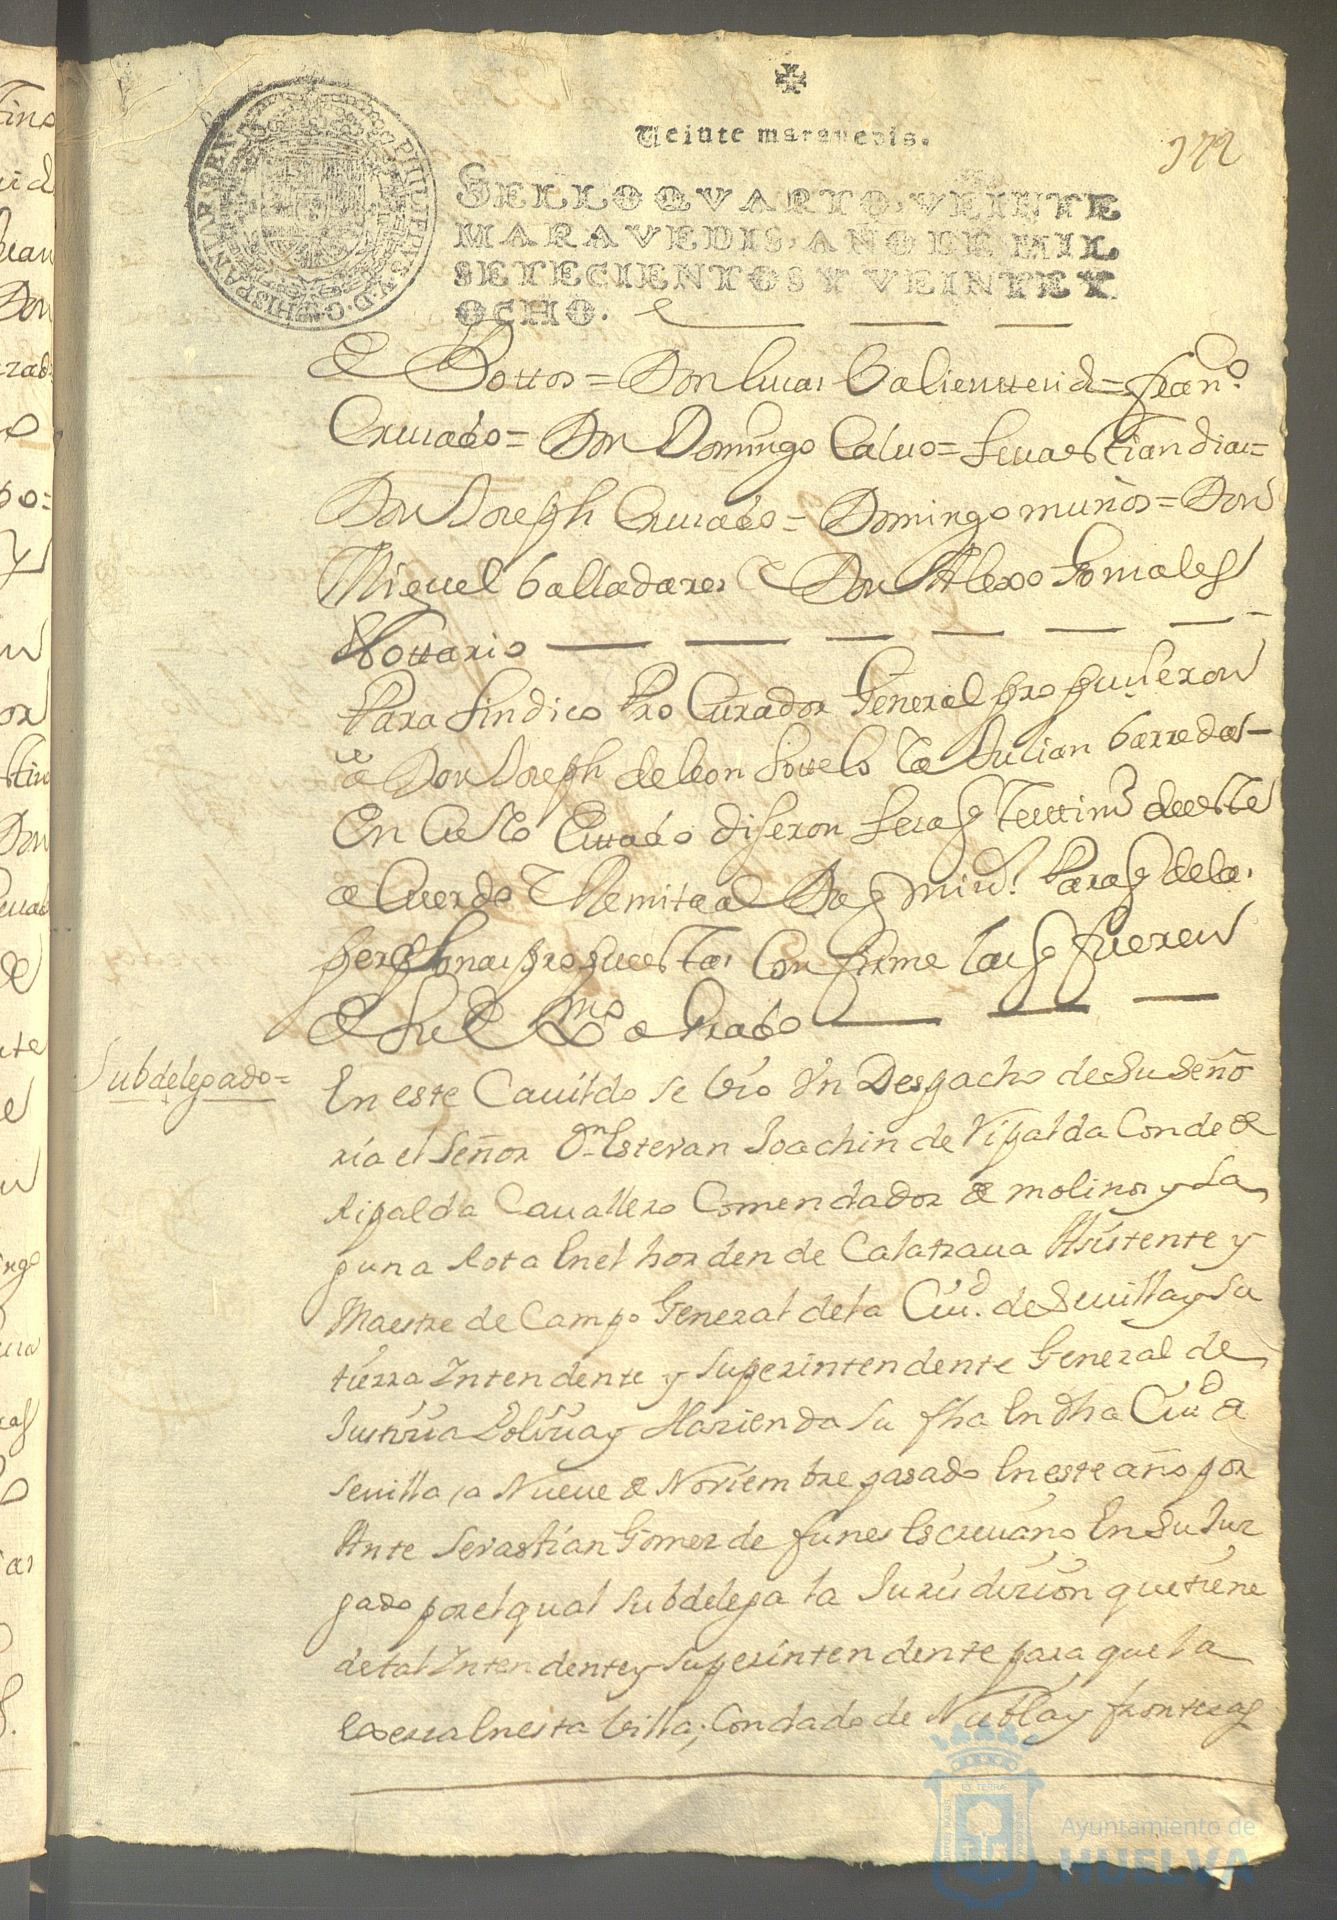 Veinte maravedis.
172
PHILIPPVS V D G HISPANIAR REX
SELLO QVARTO, VEINTE
MARAVEDIS, AÑO DE MIL
SETECIENTOS Y VEINTE Y
OCHO.
Bottos = Don lucas = fran.co
Cruzado = Don Domingo Calvo = Sevastian dias =
Don Joseph Cruzado = Domingo muños = Don
Miguel balladares Don Alexo Gonzales
Nottario
Para sindico Procurador General propusieron
a Don Joseph de leon Sottelo Julian barredas
En este dijeron testim.o de este
acuerdo remita al para q de las
personas propuestas Confirme las q fueren
de su agrado
Subdelegado =
En este Cavildo se vio Vn Despacho de Su Seño
ria el Señor Dn Estevan Joachin de Ripalda Conde de
Ripalda Cavallero Comendador de molinos y La
guna Rota En el horden de Calatraua Asistente y
Maestre de Campo General de la Ciud. de Sevilla y su
tierra Intendente y superintendente General de
Justicia Policia y Hazienda su fha En dha Ciud de
Sevilla a Nueve de Noviembre pasado En este año por
Ante Sevastian Gomez de funes Escrivano En su Juz
gado por el qual subdelega la Jurisdicion que tiene
de tal Intendente y superintendente para que la
Exersa En esta Villa, Condado de Niebla y fronteras
Ayuntamiento de
HUELVA